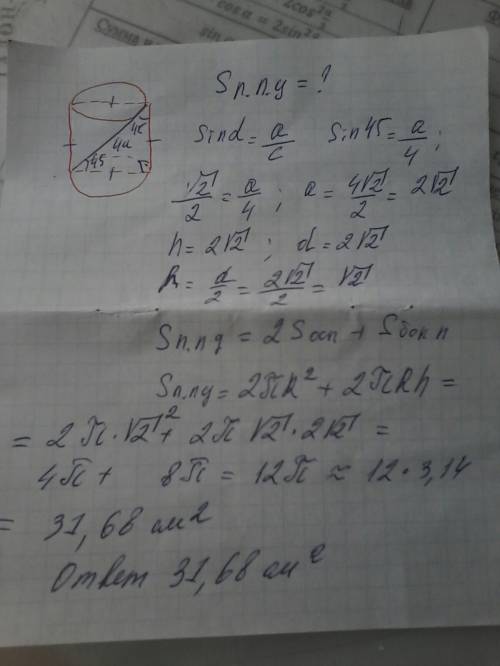 cos α = 2sin
2cos²
Sп.п.ц = ?
45
4см
45
sin α = a/c   sin 45 = a/4 ;
√2/2 = a/4 ; a = 4√2/2 = 2√2
h = 2√2 ; d = 2√2
R = d/2 = 2√2/2 = √2
Sп.пц = 2Sосн + Sбок п
Sп.пц = 2πR² + 2πRh =
= 2π·√2² + 2π√2·2√2 =
4π + 8π = 12π ≈ 12·3,14
= 31,68 см²
Ответ 31,68 см²